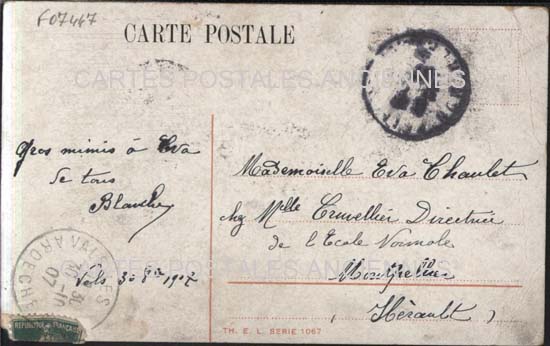 F07447
CARTE POSTALE
CARTES POSTALES ANCIENNES
Gros mimis à Eva
De tous
Blanche
Vals 30 8bre 1907
Mademoiselle Eva Chaulet
chez Mlle Cruvellier Directrice
de l'Ecole Normale
Montpellier
(Hérault)
ARDECHE
31 -10
07
REPUBLIQUE FRANÇAISE
TH. E. L. SERIE 1067